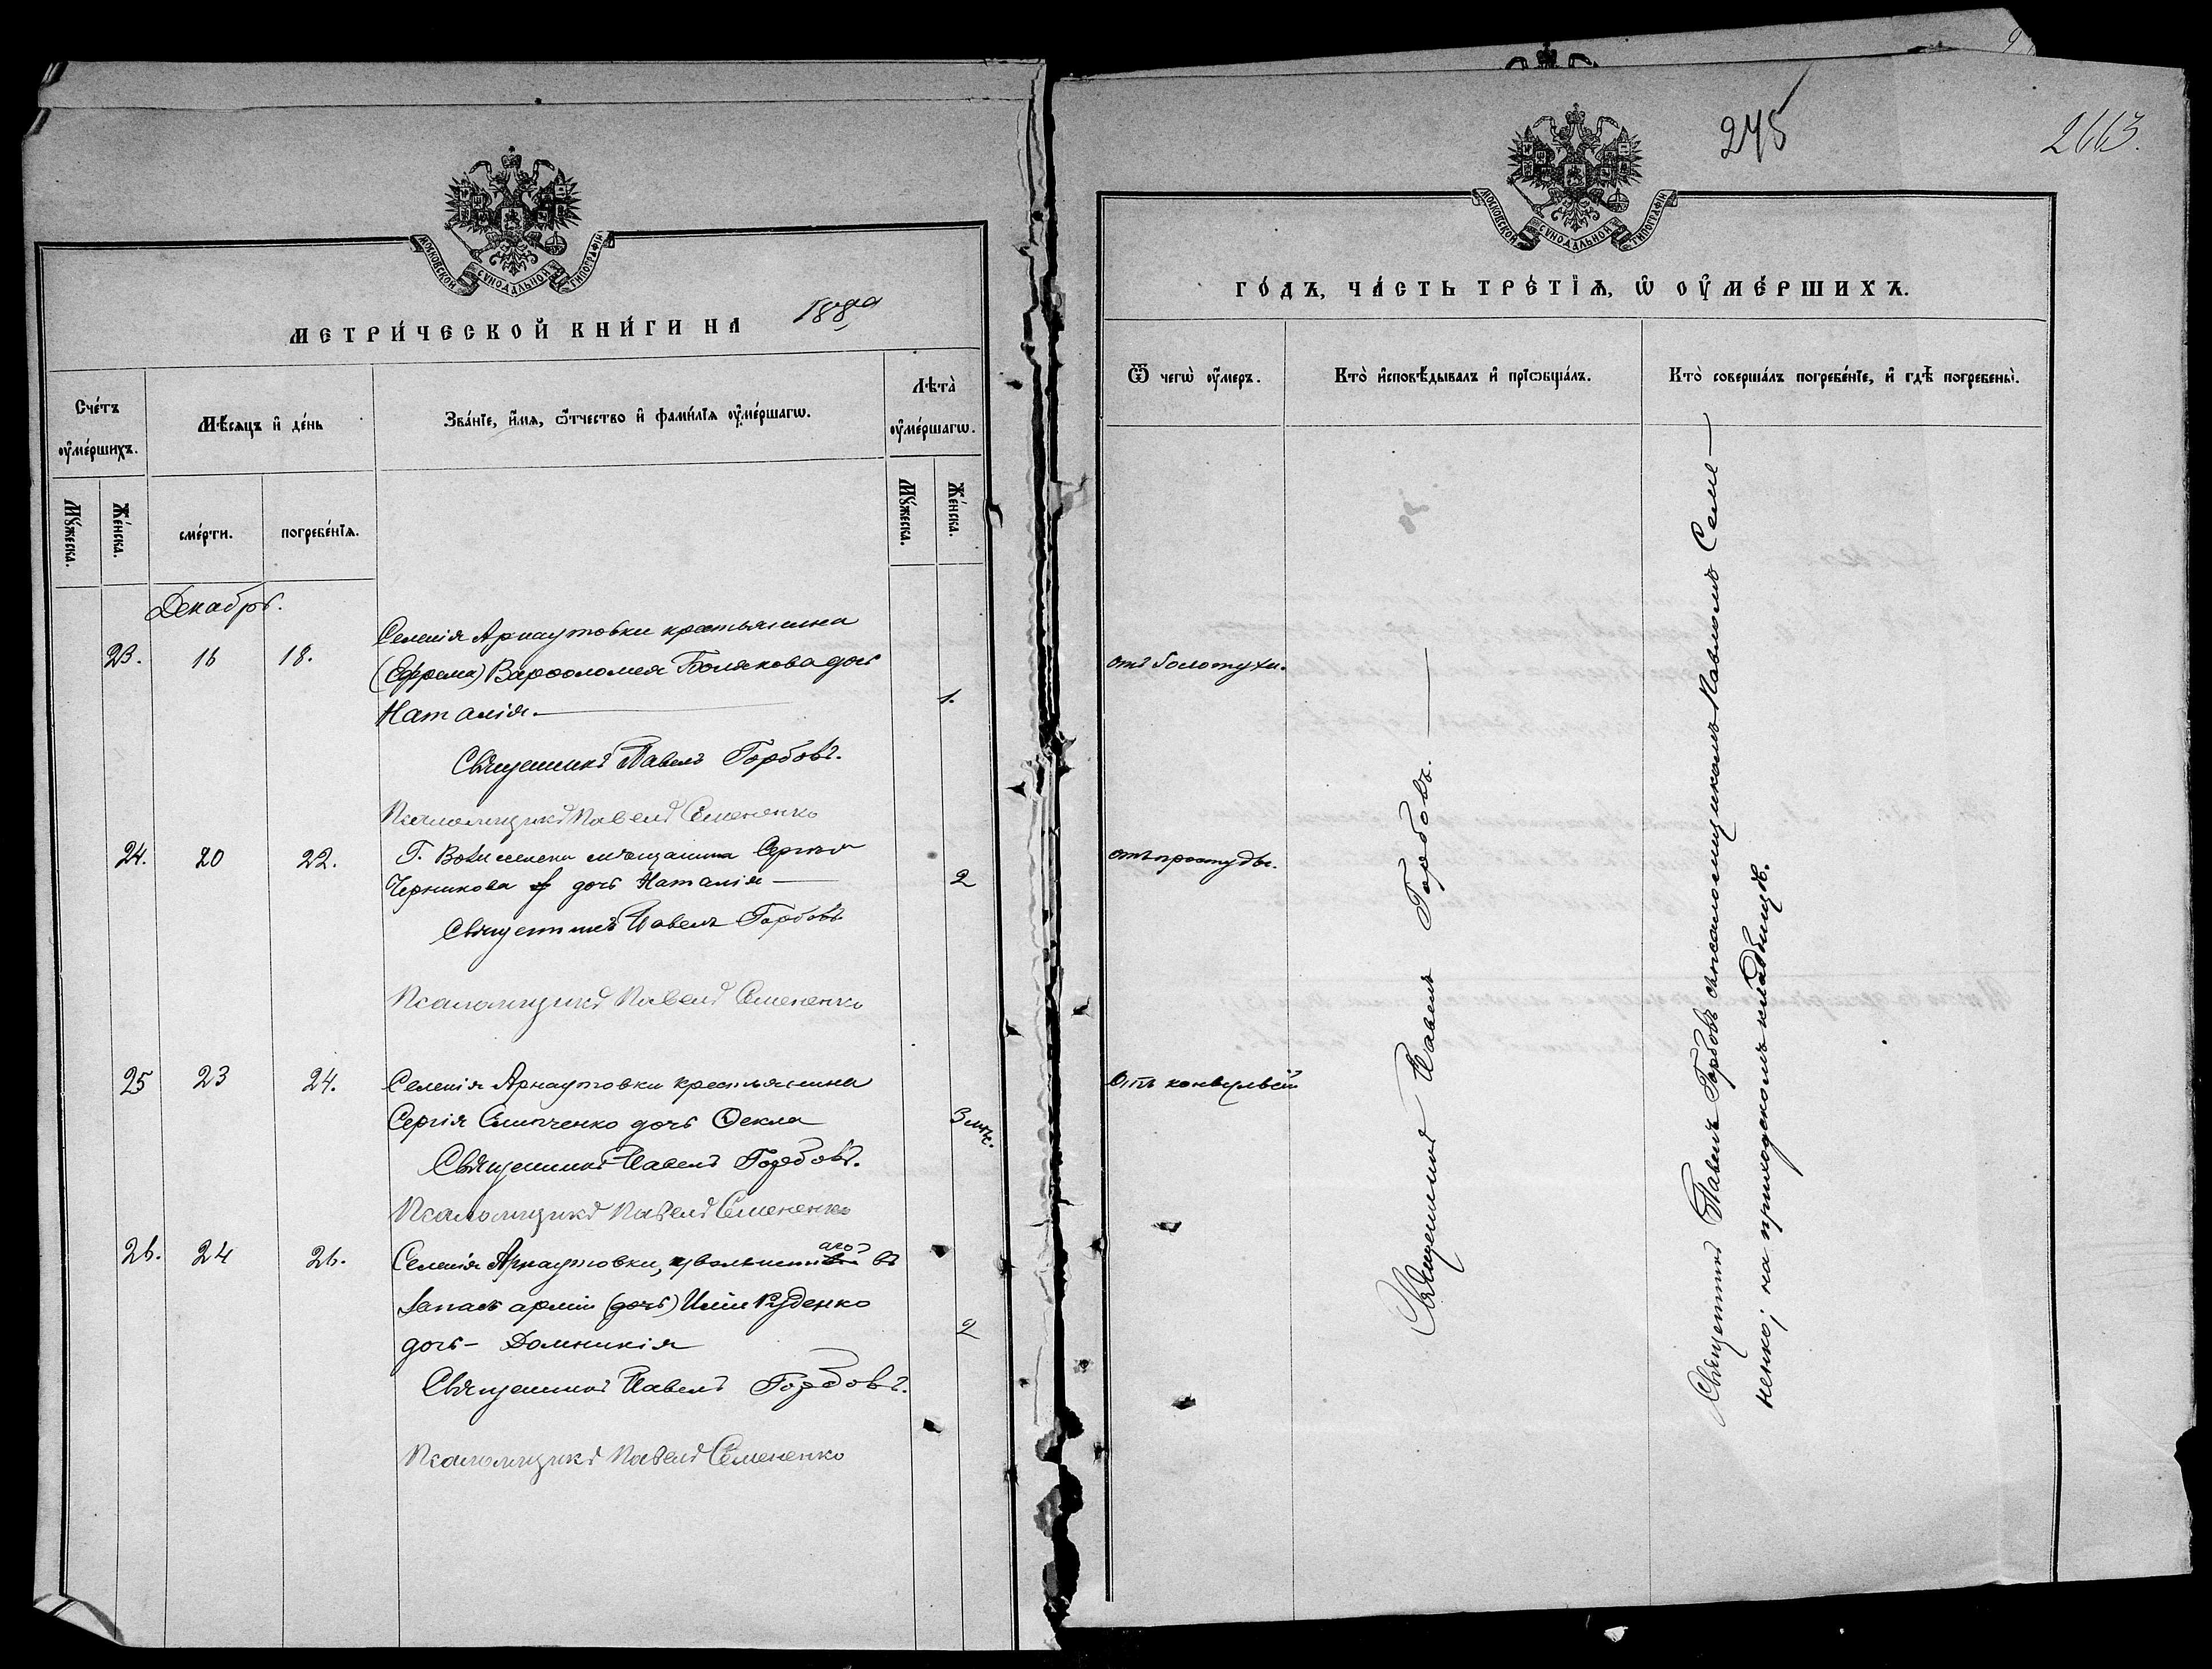 МОСКОВСКОЙ СѴНОДАЛЬНОЙ ТИПОГРАФІИ
МЕТРИ́ЧЕСКОЙ КНИ́ГИ НА
Сче́тъ оу҆ме́ршихъ.
Мѣ́сяцъ и҆ де́нь
Зва́нїе, и҆́мя, ѻ҆́тчество и҆ фами́лїя оу҆ме́ршагѡ.
Лѣта̀ оу҆ме́ршагѡ.
Мꙋ́жеска.
Же́нска.
сме́рти.
погребе́нїя.
Мꙋ́жеска.
Же́нска.
Декабрь.
23. 16 18.
Селенія Арнаутовки крестьянина
(Ефрема) Варѳоломея Болякова дочь
Наталія.—
1.
Священникъ Павелъ Горбовъ.
Псаломщикъ Павелъ Семененко
24. 20 22.
Г. мѣщанина Сергѣя
Черникова дочь Наталія —
2
Священникъ Павелъ Горбовъ
Псаломщикъ Павелъ Семененко
25 23 24.
Селенія Арнаутовки крестьянина
Сергія дочь Ѳекла
3 мѣс.
Священникъ Павелъ Горбовъ.
Псаломщикъ Павелъ Семененко
26. 24 26.
Селенія Арнаутовки, уволеннаго въ
запасъ арміи (дочь) Иліи Руденко
дочь – Домникія
2
Священникъ Павелъ Горбовъ.
Псаломщикъ Павелъ Семененко
245
2663.
МОСКОВСКОЙ СѴНОДАЛЬНОЙ ТИПОГРАФІИ
ГО́ДЪ, ЧА́СТЬ ТРЕ́ТЇѦ, Ѡ҆ ОУ҆МЕ́РШИХЪ.
Ѿ чегѡ̀ оу҆́меръ.
Кто̀ и҆сповѣ́дывалъ и҆ прїѡбща́лъ.
Кто̀ соверша́лъ погребе́нїе, и҆ гдѣ̀ погребены̀.
отъ золотухи.
отъ простуды.
Отъ конвульсій
Священникъ Павелъ Горбовъ. —
Священникъ Павелъ Горбовъ съ псаломщикомъ Павломъ Семе—
ненко; на приходскомъ кладбищѣ.